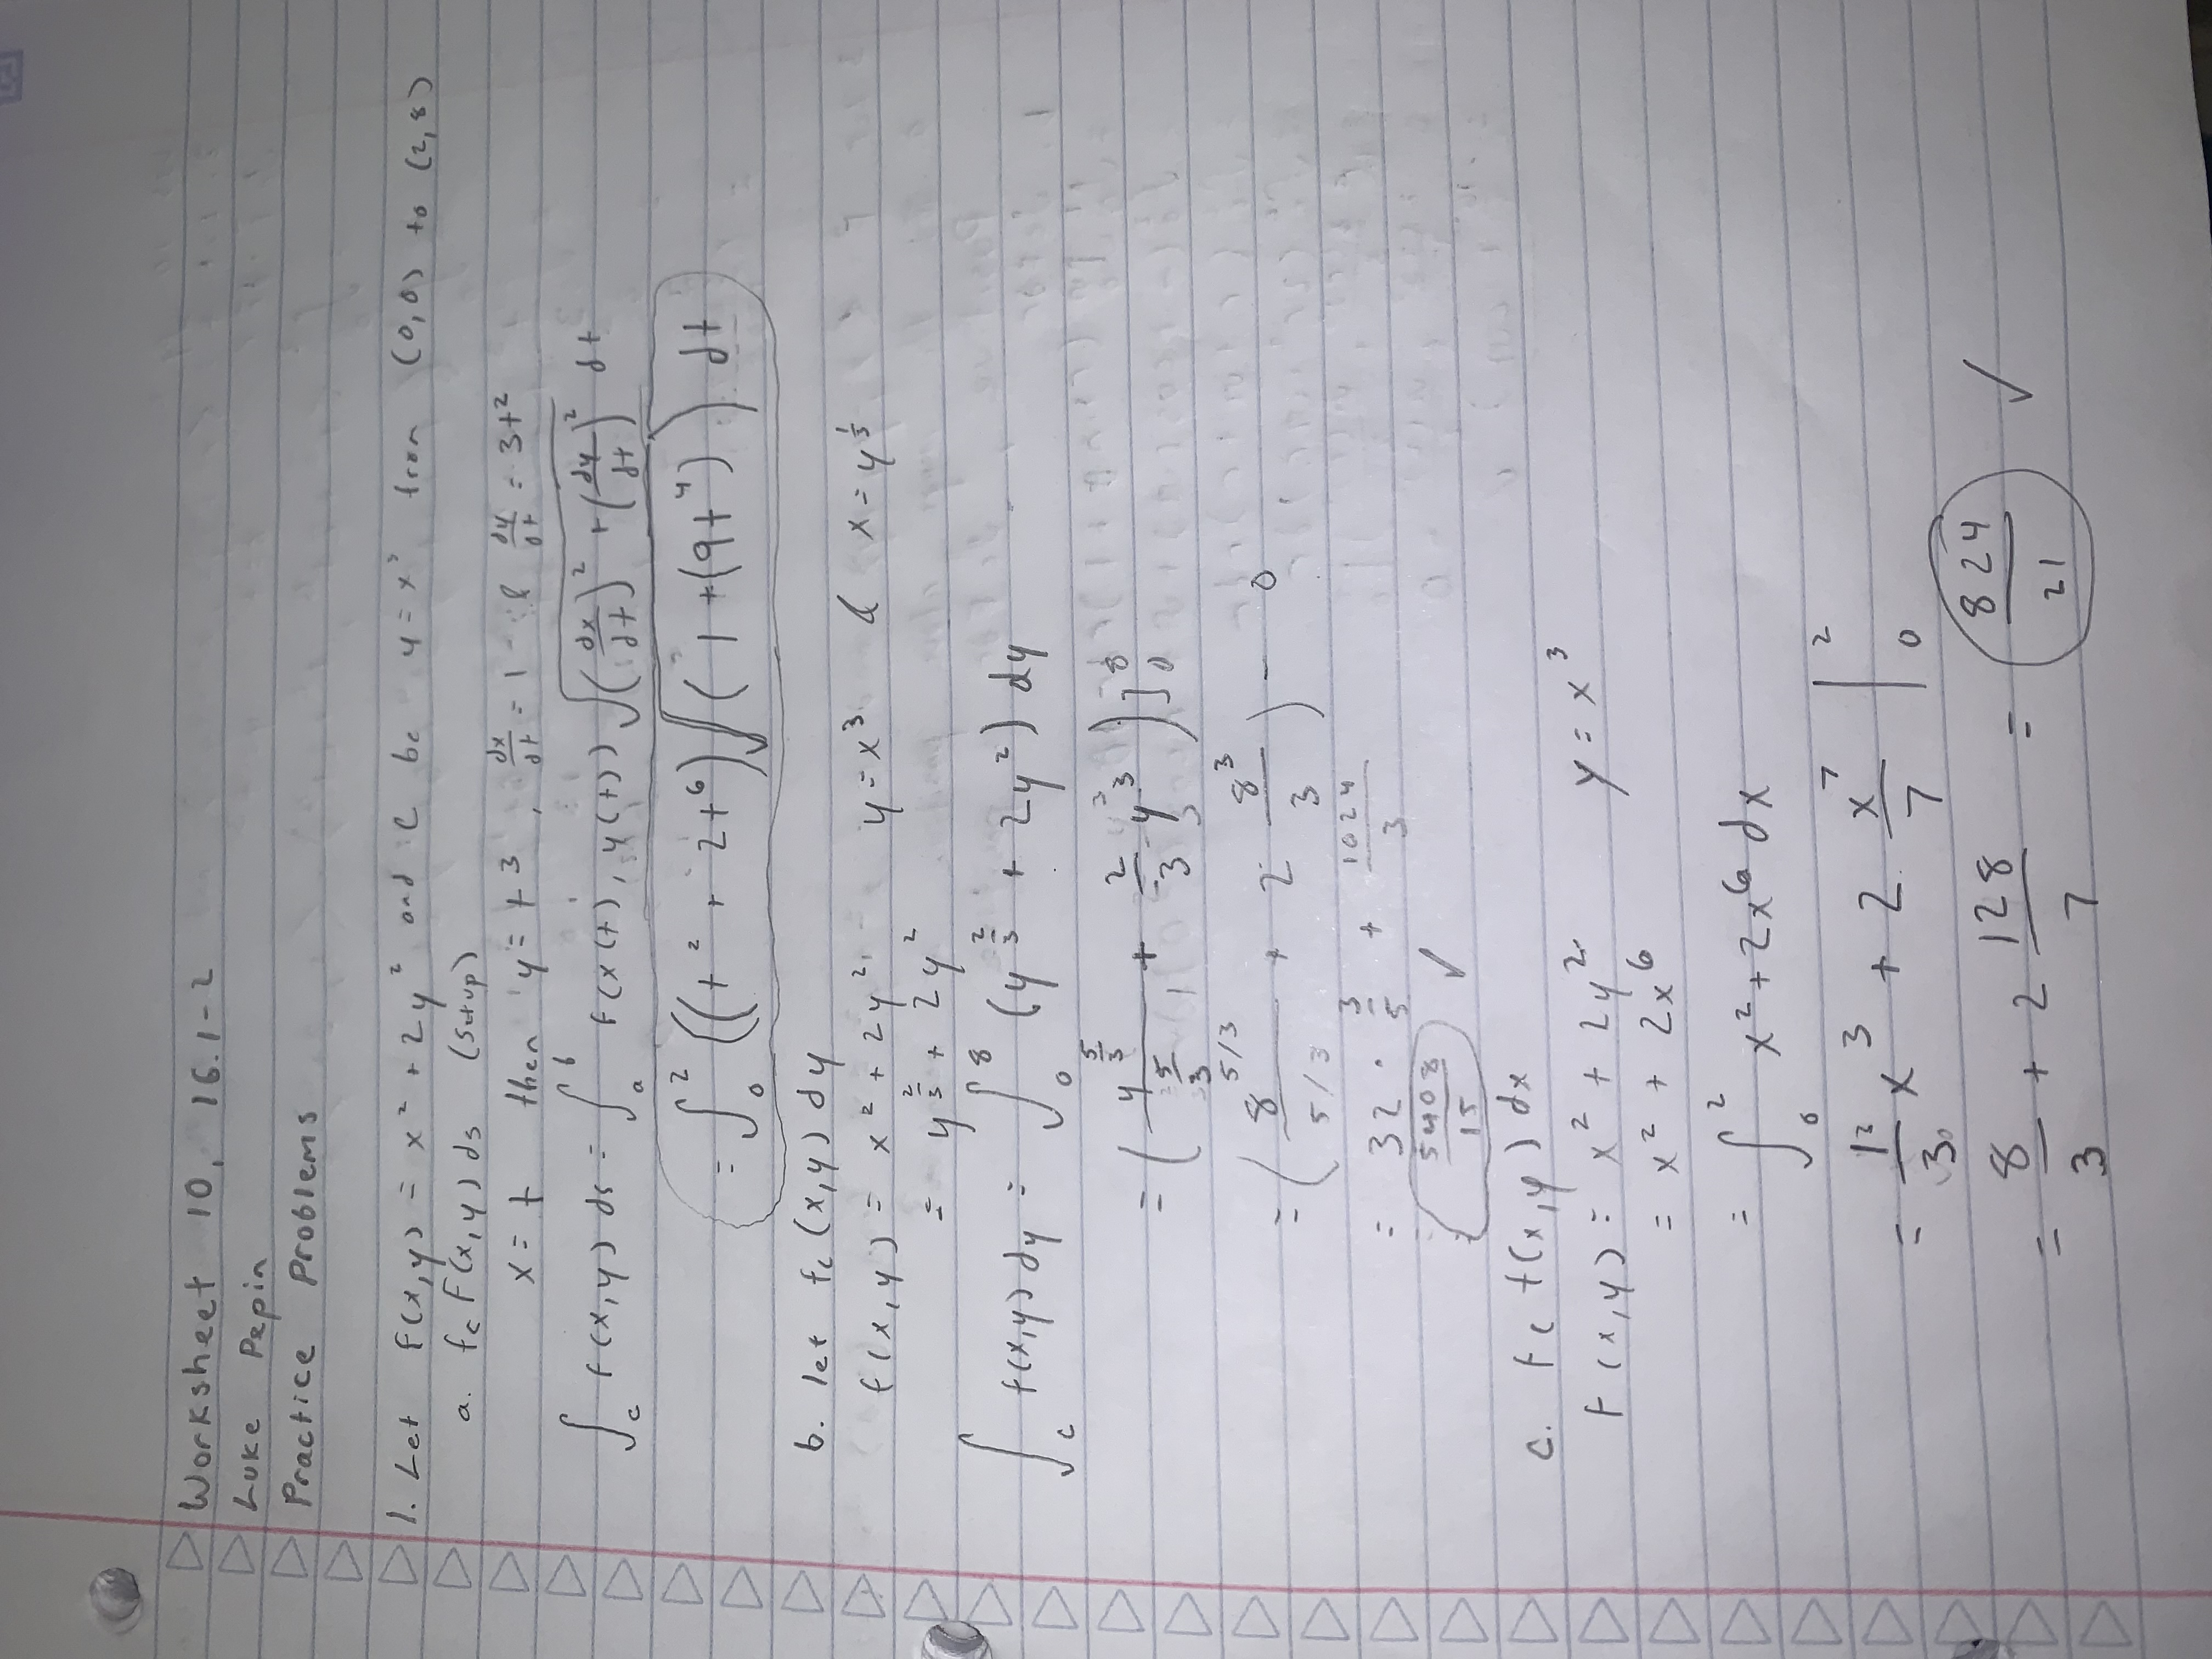 Worksheet 10, 16.1-2
Luke Pepin
Practice Problems
1. Let f(x,y) = x² + 2y² and C be y = x³ from (0,0) to (2,8)
a. ∫c F(x,y) ds (Setup)
x = t then y = t³, dx/dt = 1 & dy/dt = 3t²
∫_c f(x,y) ds = ∫_a^b f(x(t), y(t)) √((dx/dt)² + (dy/dt)²) dt
= ∫_0^2 ((t² + 2t⁶) √(1 + (9t⁴)) dt
b. let ∫c (x,y) dy
f(x,y) = x² + 2y² y = x³ & x = y^(1/3)
= y^(2/3) + 2y²
∫_c f(x,y) dy = ∫_0^8 (y^(2/3) + 2y²) dy
= (y^(5/3)/(5/3) + 2/3 y³)]_0^8
= (8^(5/3)/(5/3) + 2 8³/3) - 0
= 32 · 3/5 + 1024/3
= 5408/15 ✓
c. ∫c f(x,y) dx
F(x,y) = x² + 2y² y = x³
= x² + 2x⁶
= ∫_0^2 x² + 2x⁶ dx
= 1/3 x³ + 2 x⁷/7 |_0^2
= 8/3 + 2 128/7 = 824/21 ✓